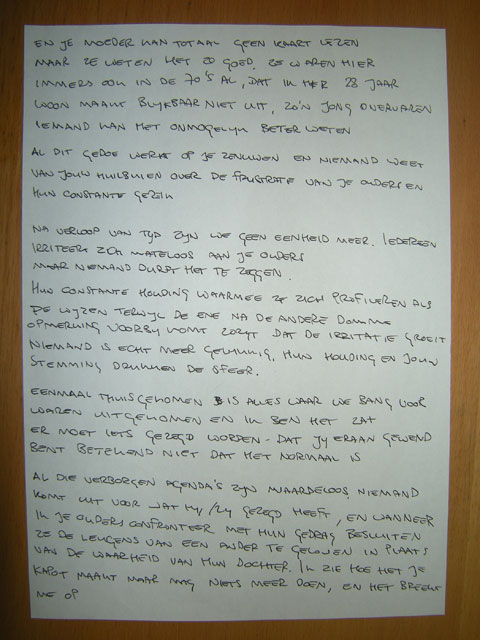 EN JE MOEDER KAN TOTAAL GEEN KAART LEZEN
MAAR ZE WETEN HET ZO GOED. ZE WAREN HIER
IMMERS OOK IN DE 70'S AL, DAT IK HIER 28 JAAR
WOON MAAKT BLIJKBAAR NIET UIT, ZO'N JONG ONERVAREN
IEMAND KAN HET ONMOGELIJK BETER WETEN
AL DIT GEDOE WERKT OP JE ZENUWEN EN NIEMAND WEET
VAN JOUW HUILBUIEN OVER DE FRUSTRATIE VAN JE OUDERS EN
HUN CONSTANTE GEZEIK
NA VERLOOP VAN TIJD ZIJN WE GEEN EENHEID MEER. IEDEREEN
IRRITEERT ZICH MATELOOS AAN JE OUDERS
MAAR NIEMAND DURFT HET TE ZEGGEN.
HUN CONSTANTE HOUDING WAARMEE ZE ZICH PROFILEREN ALS
DE WIJZEN TERWIJL DE ENE NA DE ANDERE DOMME
OPMERKING VOORBIJ KOMT ZORGT DAT DE IRRITATIE GROEIT
NIEMAND IS ECHT MEER GELUKKIG, HUN HOUDING EN JOUW
STEMMING DRUKKEN DE SFEER.
EENMAAL THUISGEKOMEN IS ALLES WAAR WE BANG VOOR
WAREN UITGEKOMEN EN IK BEN HET ZAT
ER MOET IETS GEZEGD WORDEN - DAT JIJ ERAAN GEWEND
BENT BETEKEND NIET DAT HET NORMAAL IS
AL DIE VERBORGEN AGENDA'S ZIJN WAARDELOOS. NIEMAND
KOMT UIT VOOR WAT HIJ/ZIJ GEZEGD HEEFT, EN WANNEER
IK JE OUDERS CONFRONTEER MET HUN GEDRAG BESLUITEN
ZE DE LEUGENS VAN EEN ANDER TE GELOVEN IN PLAATS
VAN DE WAARHEID VAN HUN DOCHTER. IK ZIE HOE HET JE
KAPOT MAAKT MAAR MAG NIETS MEER DOEN, EN HET BREEKT
ME OP